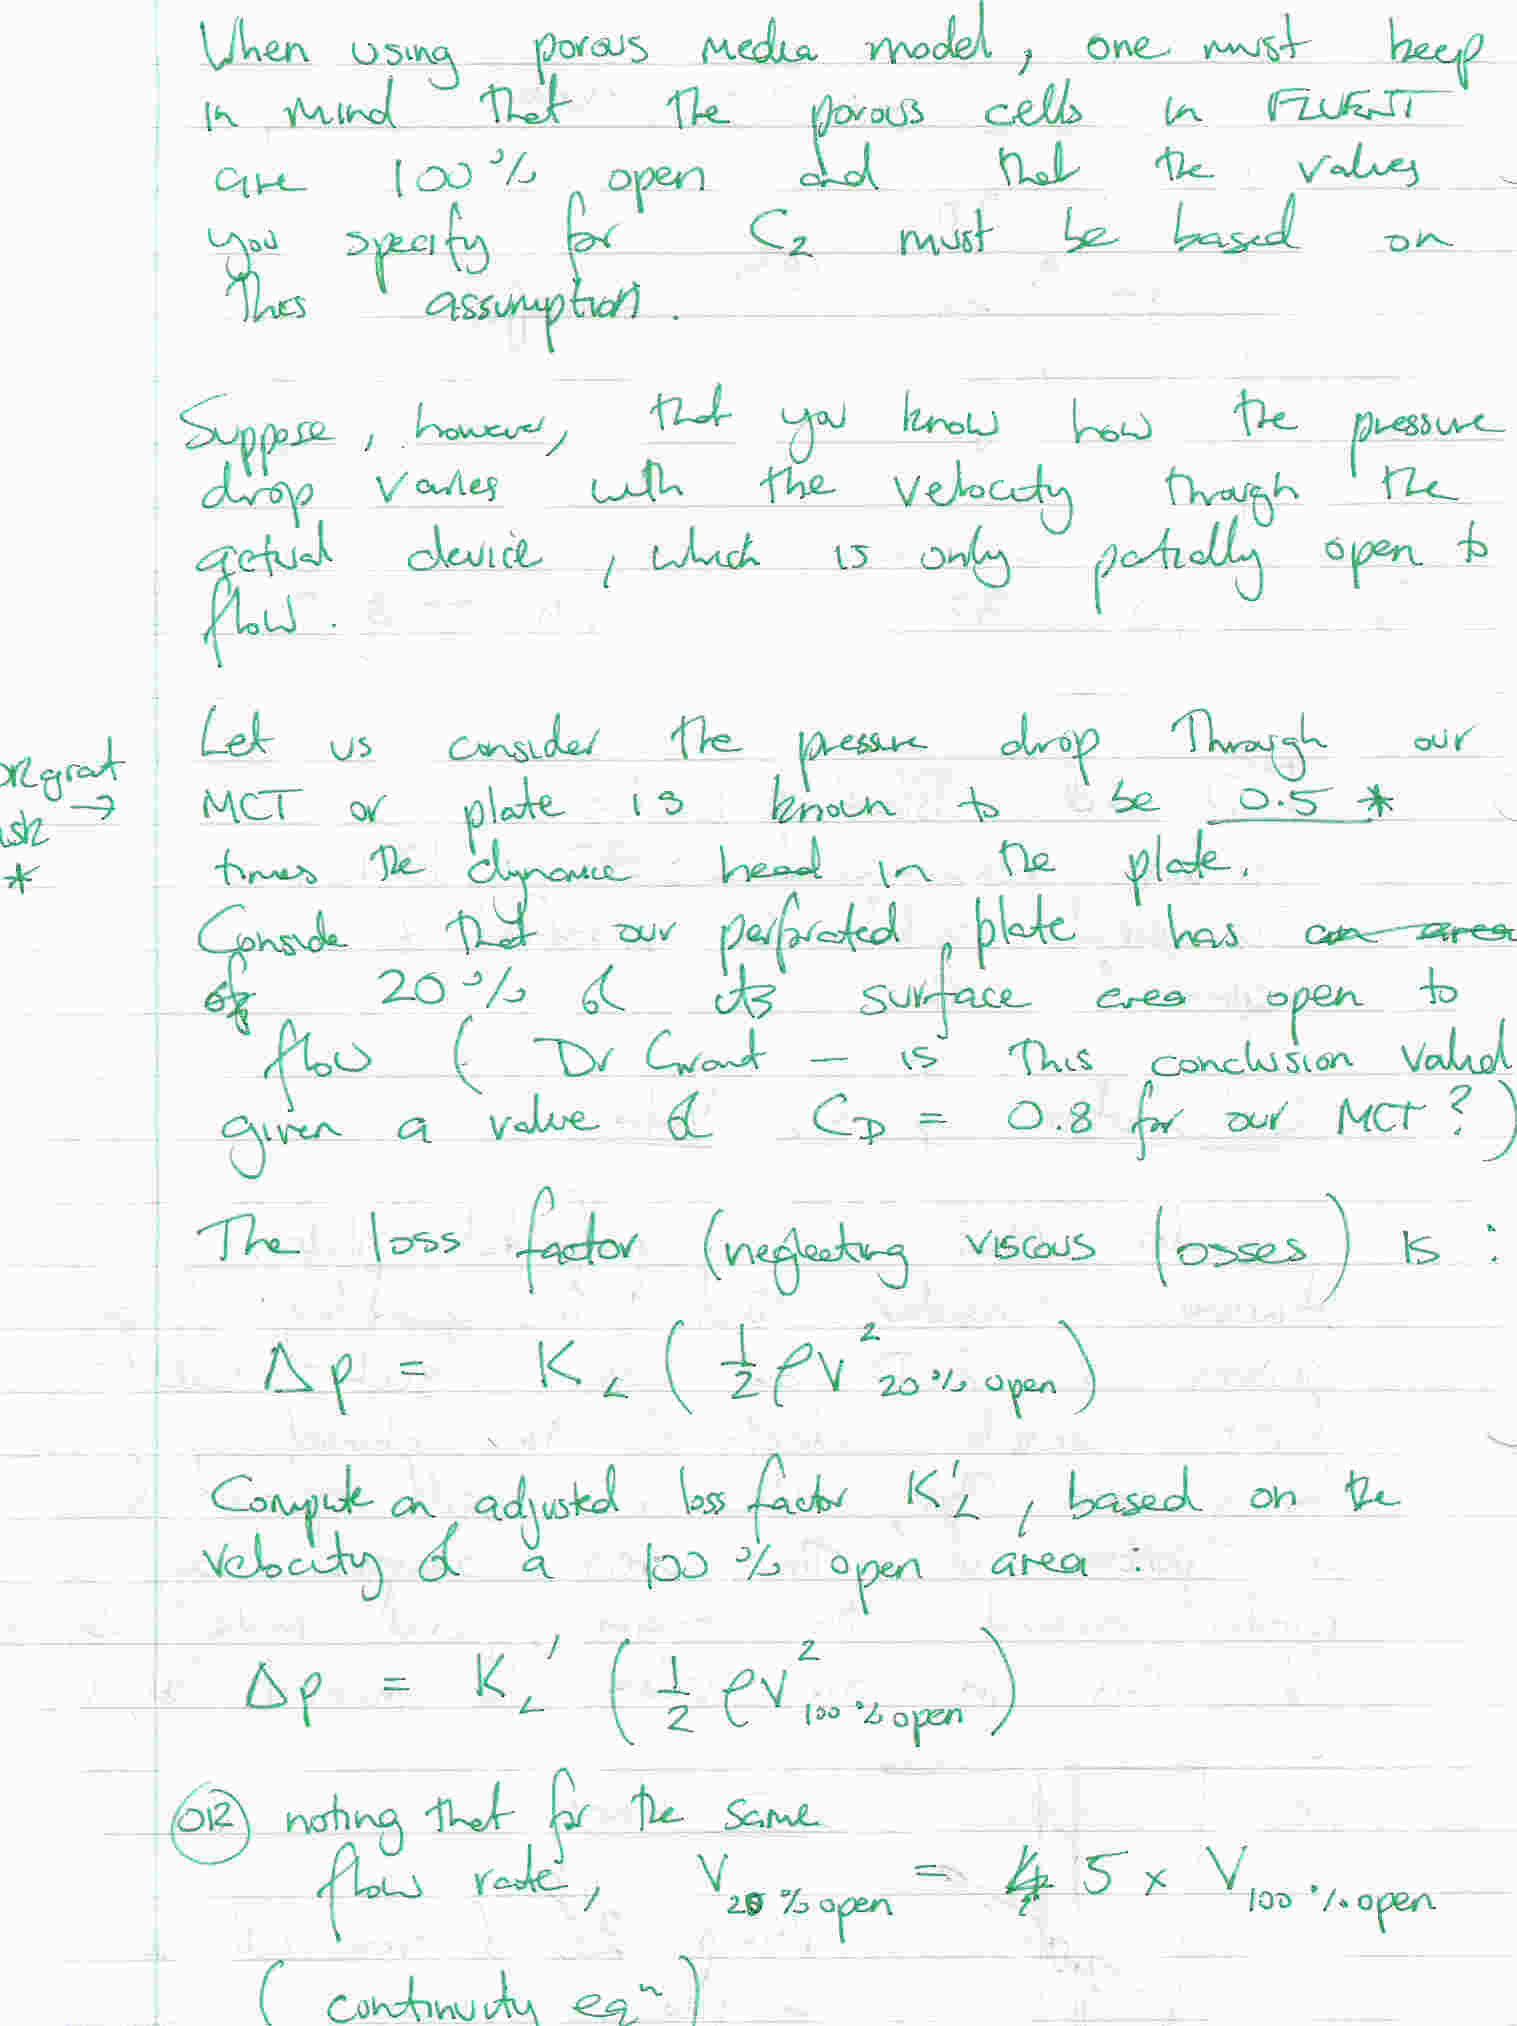 When using porous media model, one must keep
in mind that the porous cells in FLUENT
are 100% open and that the values
you specify for C2 must be based on
this assumption.
Suppose, however, that you know how the pressure
drop varies with the velocity through the
actual device, which is only patially open to
flow.
Let us consider the pressure drop through our
MCT or plate is known to be 0.5 *
→
times the dynamic head in the plate.
*
Conside that our perforated plate has an area
of 20% of its surface area open to
flow ( Dr Grant — is this conclusion valid
given a value of CD = 0.8 for our MCT? )
The loss factor (neglecting viscous losses) is :
Δp = KL ( 1/2 ρV²20% open )
Compute an adjusted loss factor K'L, based on the
velocity of a 100% open area :
Δp = KL' ( 1/2 ρV²100% open )
OR noting that for the same
flow rate, V20% open = 4 5 x V100% open
( continuity eqⁿ )